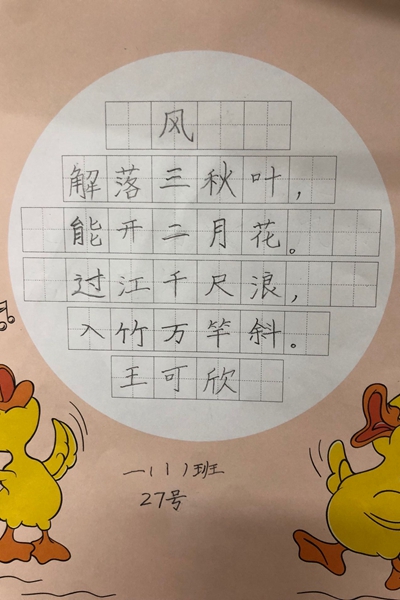 风
解落三秋叶，
能开二月花。
过江千尺浪，
入竹万竿斜。
王可欣
一（1）班
27号